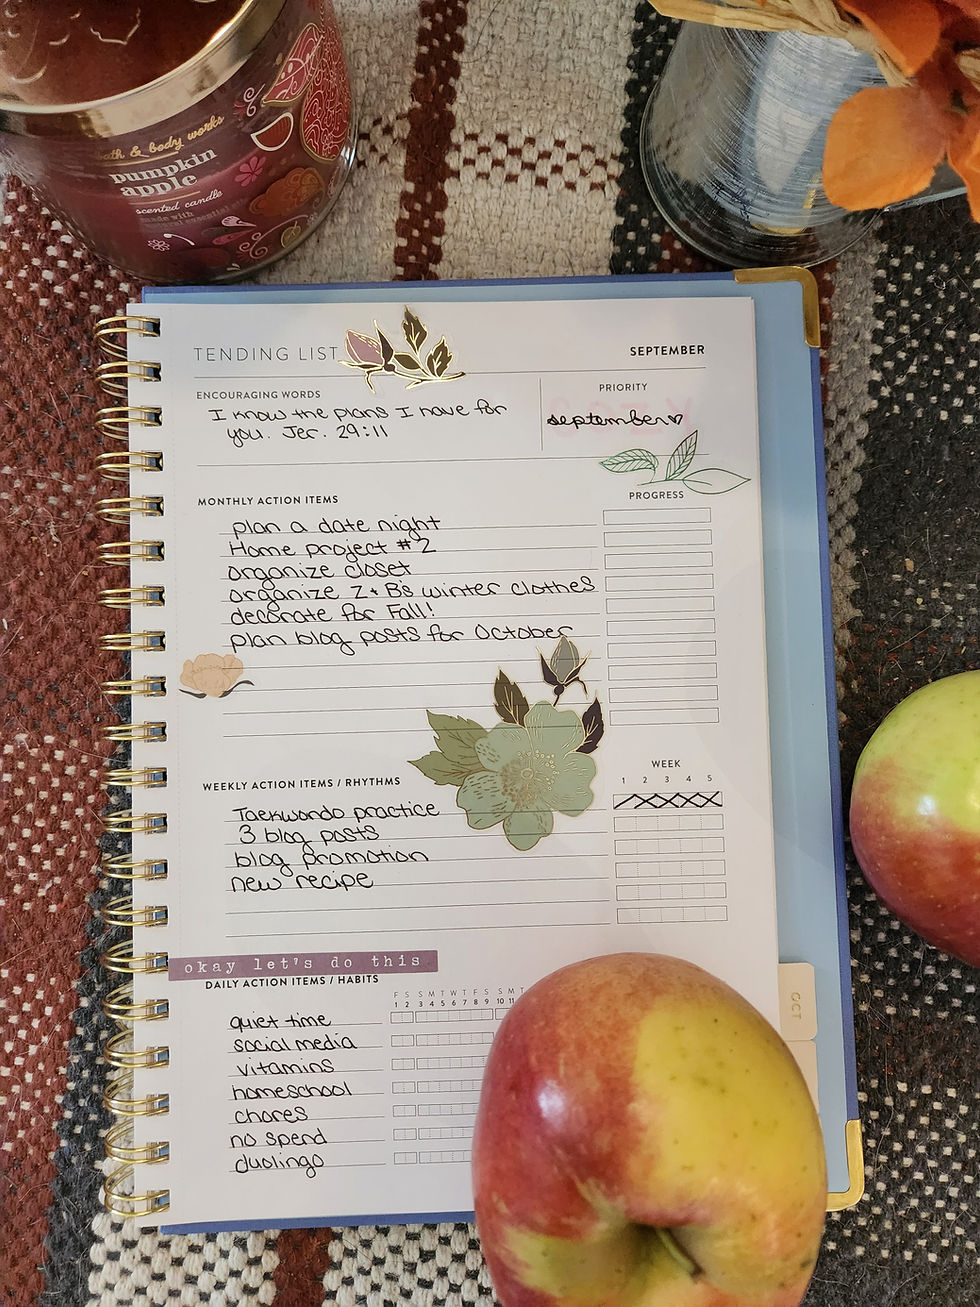 bath & body works
pumpkin
apple
scented candle
made with
essential
TENDING LIST
SEPTEMBER
ENCOURAGING WORDS
I know the plans I have for
you. Jer. 29:11
PRIORITY
september
MONTHLY ACTION ITEMS
PROGRESS
plan a date night
Home project #2
organize closet
organize Z + B's winter clothes
decorate for Fall!
plan blog posts for October
WEEKLY ACTION ITEMS / RHYTHMS
WEEK
1 2 3 4 5
Taekwondo practice
3 blog posts
blog promotion
new recipe
okay let's do this
DAILY ACTION ITEMS / HABITS
F S S M T W T F S S M T
1 2 3 4 5 6 7 8 9 10 11
quiet time
social media
vitamins
homeschool
chores
no spend
duolingo
OCT